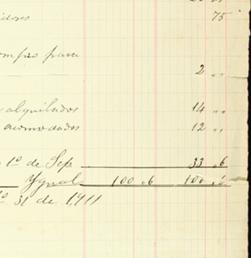 75
para
2 „
alquilados 14 „
acomodados 12 „
1º de Sepe 33 „ 6
Ygual 100 „ 6 100 „ 6
31 de 1,911